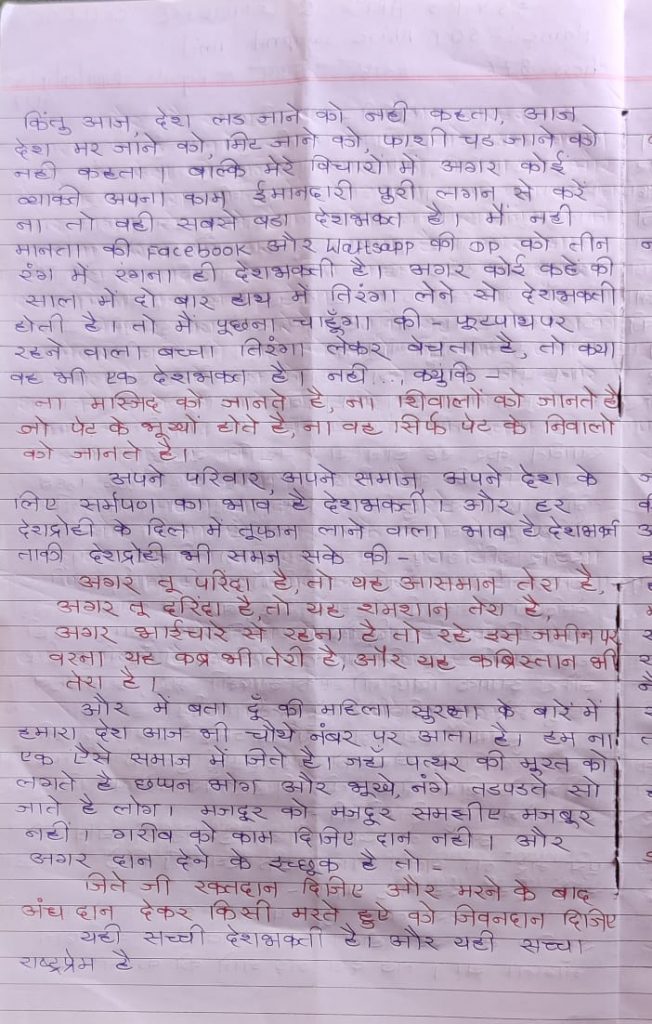 किंतु आज, देश लड जाने को नही कहता, आज
देश मर जाने को, मिट जाने को, फाशी चड जाने को
नही कहता। बल्कि मेरे विचारों में अगर कोई
व्यक्ति अपना काम ईमानदारी पुरी लगन से करें
ना तो वही सबसे बडा देशभक्त है। मैं नही
मानता की Facebook और Whatsapp की DP को तीन
रंग में रंगना ही देशभक्ती है। अगर कोई कहें की
साल में दो बार हाथ में तिरंगा लेने से देशभक्ती
होती है। तो मैं पूछना चाहुँगा की - फूटपाथपर
रहने वाला बच्चा तिरंगा लेकर बेचता है, तो क्या
वह भी एक देशभक्त है। नही..., क्युकि -
ना मस्जिद को जानते है, ना शिवालों को जानते है
जो पेट के भूख्यों होते है, ना वह सिर्फ पेट के निवालों
को जानते है।
अपने परिवार, अपने समाज, अपने देश के
लिए सर्मपण का भाव है देशभक्ती। और, हर
देशद्रोही के दिल में तूफान लाने वाला भाव है देशभक्ती
ताकी देशद्रोही भी समज सके की -
अगर तू परिंदा है, तो यह आसमान तेरा है,
अगर तू दरिंदा है, तो यह शमशान तेरा है,
अगर भाईचारे से रहना है, तो रहे इस जमीन पर
वरना यह कब्र भी तेरी है, और यह कब्रिस्तान भी
तेरा है।
और में बता दूँ की महिला सुरक्षा के बारे में
हमारा देश आज भी चौथे नंबर पर आता है। हम ना
एक ऐसे समाज में जिते है। जहाँ पत्थर की मुरत को
लगते है छप्पन भोग और भूखे, नंगे तडपडते सो
जाते है लोग। मजदुर को मजदुर समझीए मजबुर
नही। गरीब को काम दिजिए दान नही। और
अगर दान देने के इच्छुक है तो -
जिते जी रक्तदान दिजिए और मरने के बाद
अंध दान देकर किसी मरते हुऐ को जिवनदान दिजिए
यही सच्ची देशभक्ती है। और यही सच्चा
राष्ट्रप्रेम है